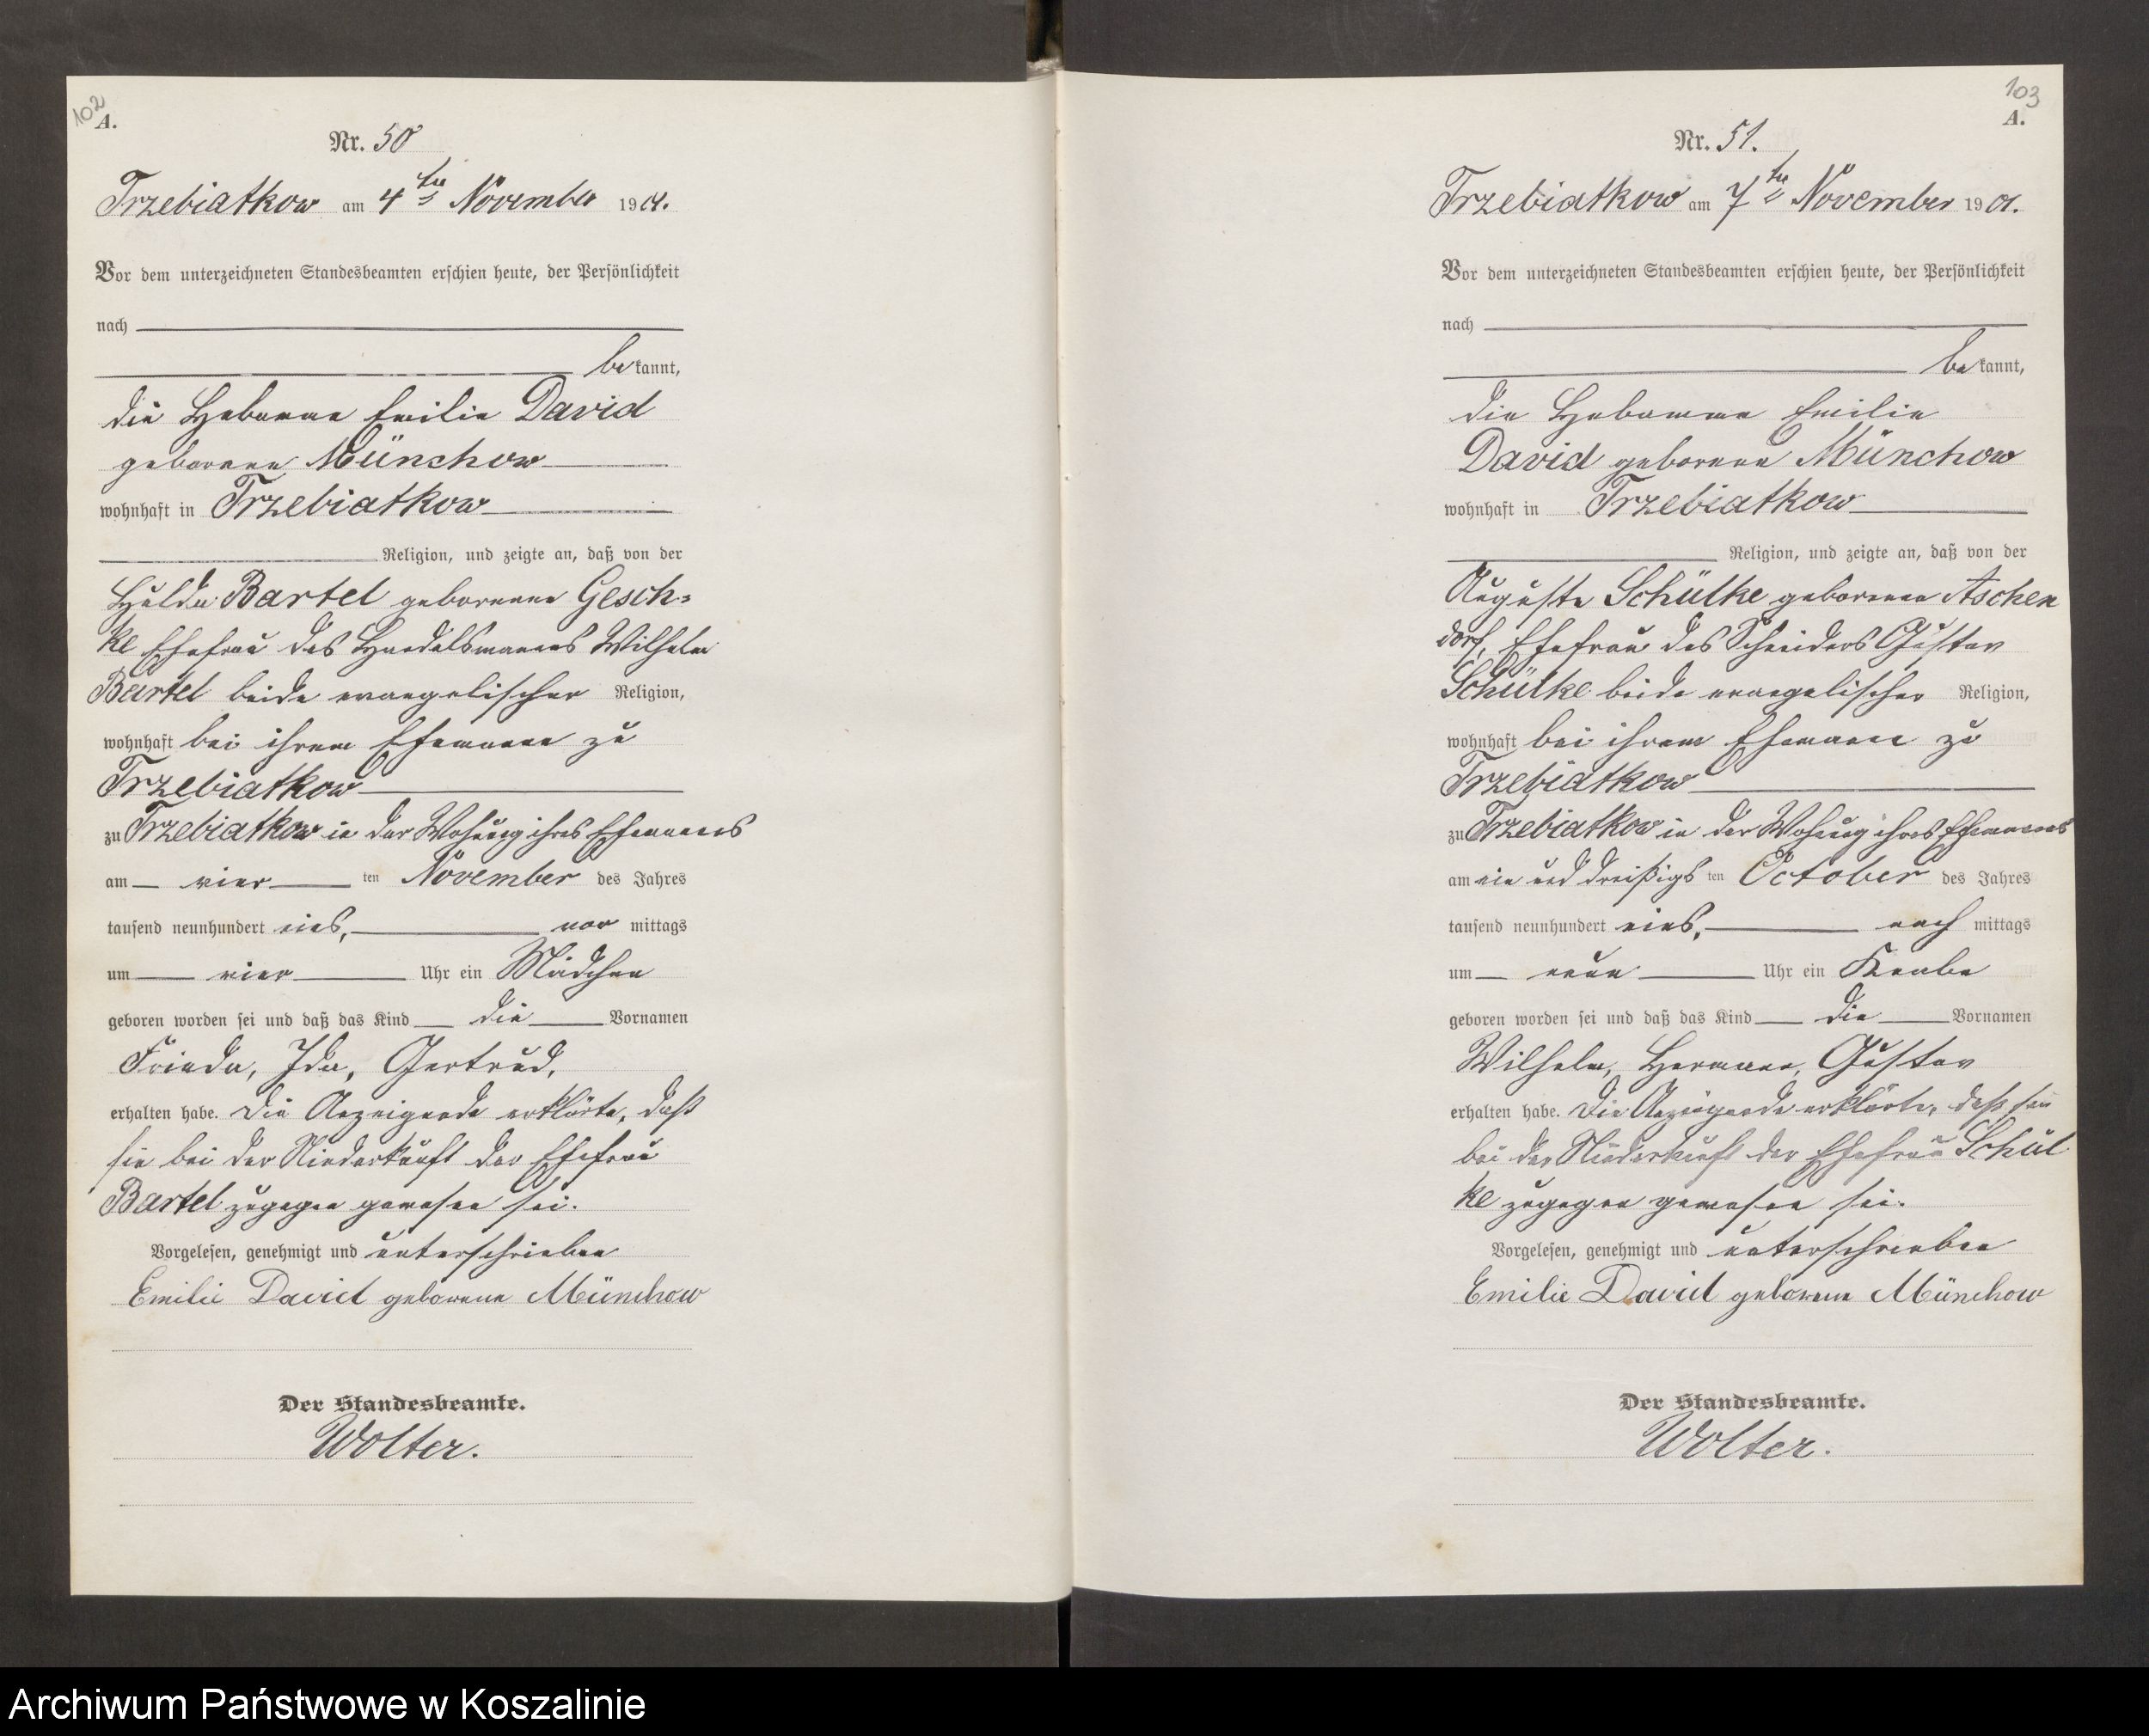 102
A.
Nr. 50
Trzebiatkow am 4ten November 1901.
Vor dem unterzeichneten Standesbeamten erschien heute, der Persönlichkeit
nach
bekannt,
die Hebamme Emilie David
geborene Münchow
wohnhaft in Trzebiatkow
Religion, und zeigte an, daß von der
Hulda Bartel geborenen Gesch=
ke Ehefrau des Handelsmannes Wilhelm
Bartel beide evangelischer Religion,
wohnhaft bei ihrem Ehemanne zu
Trzebiatkow
zu Trzebiatkow in der Wohnung ihres Ehemannes
am vier ten November des Jahres
tausend neunhundert eins, vor mittags
um vier Uhr ein Mädchen
geboren worden sei und daß das Kind die Vornamen
Frieda, Ida, Gertrud,
erhalten habe. Die Anzeigende erklärte, daß
sie bei der Niederkunft der Ehefrau
Bartel zugegen gewesen sei.
Vorgelesen, genehmigt und unterschrieben
Emilie David geborene Münchow
Der Standesbeamte.
Wolter.
103
A.
Nr. 51.
Trzebiatkow am 7ten November 1901.
Vor dem unterzeichneten Standesbeamten erschien heute, der Persönlichkeit
nach
bekannt,
die Hebamme Emilie
David geborene Münchow
wohnhaft in Trzebiatkow
Religion, und zeigte an, daß von der
Auguste Schülke geborenen Aschen
dorf, Ehefrau des Schneiders Gustav
Schülke beide evangelischer Religion,
wohnhaft bei ihrem Ehemanne zu
Trzebiatkow
zu Trzebiatkow in der Wohnung ihres Ehemannes
am ein und dreißigs ten October des Jahres
tausend neunhundert eins, nach mittags
um neun Uhr ein Knabe
geboren worden sei und daß das Kind die Vornamen
Wilhelm, Hermann, Gustav
erhalten habe. Die Anzeigende erklärte, daß sie
bei der Niederkunft der Ehefrau Schül
ke zugegen gewesen sei.
Vorgelesen, genehmigt und unterschrieben
Emilie David geborene Münchow
Der Standesbeamte.
Wolter.
Archiwum Państwowe w Koszalinie